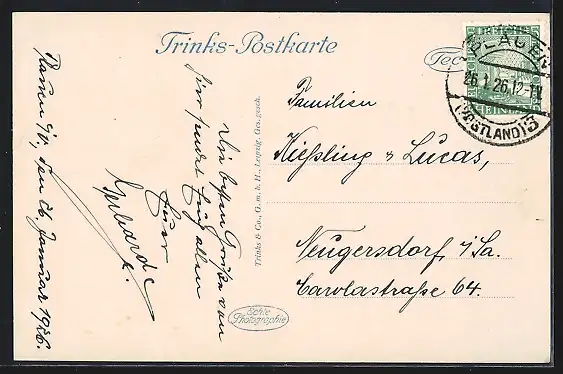 Trinks-Postkarte
Plauen i/V., den 26. Januar 1926.
Die besten Grüße von
hier sendet Euch allen
Euer
Gerhard
Trinks & Co., G. m. b. H., Leipzig. Ges. gesch.
Echte
Photographie
PLAUEN
26.1.26.12-1N
(VOGTLAND) 3
Familien
Kießling & Lucas,
Neugersdorf i/Sa.
Carolastraße 64.